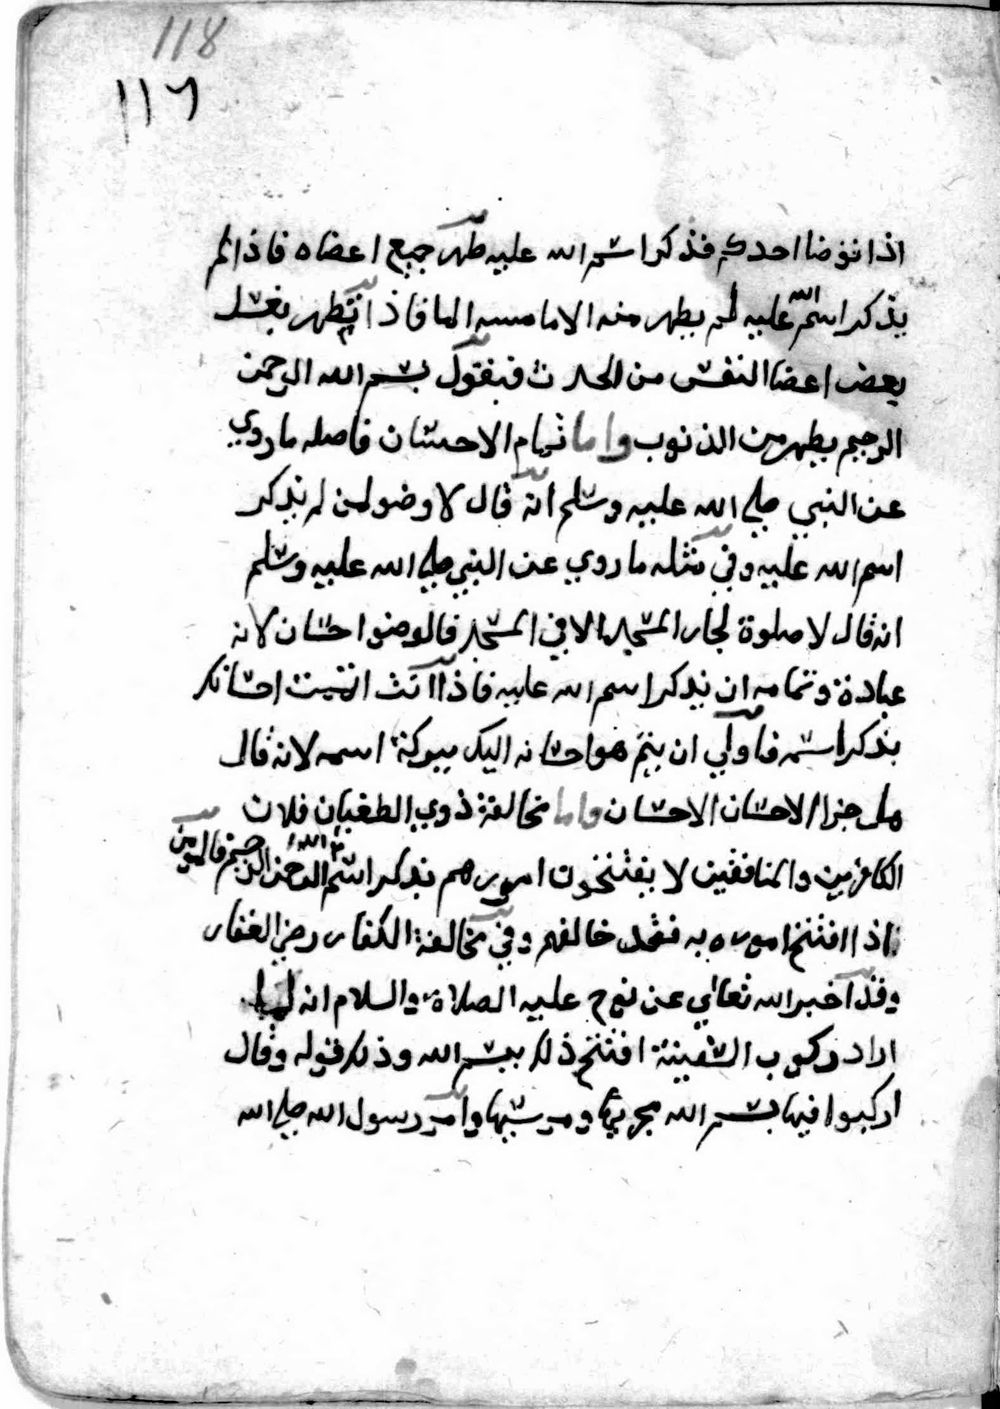 118
١١٦
اذا توضا احدكم فذكر اسم الله عليه طهر جميع اعضاه فاذا لم
يذكر اسم الله عليه لم يطهر منه الا ما مسه الما فاذا تطهر بغسل
بعض اعضا النفس من الحدث فبقول بسم الله الرحمن
الرحيم يطهر من الذنوب واما تمام الاحسان فاصله ما روي
عن النبي صلي الله عليه وسلم انه قال لا وضو لمن لم يذكر
اسم الله عليه وفي مثله ما روي عن النبي صلي الله عليه وسلم
انه قال لا صلوة لجار المسجد الا في المسجد فالوضوا حسان لانه
عبادة وتمامه ان يذكر اسم الله عليه فاذا انت اتممت احسانك
بذكر اسمه فاولي ان يتم هو احسانه اليك ببركة اسمه لانه قال
هل جزا الاحسان الا الاحسان واما مخالفة ذوي الطغيان فلان
الكافرين والمنافقين لا يفتتحون امورهم بذكر اسم الله الرحمن الرحيم فالمومن
اذا افتتح اموره به فقد خالفهم وفي مخالفة الكفار رضي الغفار
وقد اخبر الله تعالي عن نوح عليه الصلاة والسلام انه لما
اراد ركوب السفينة افتتح ذلك ببسم الله وذلك قوله وقال
اركبوا فيها بسم الله مجريها ومرسيها وامر رسول الله صلي الله